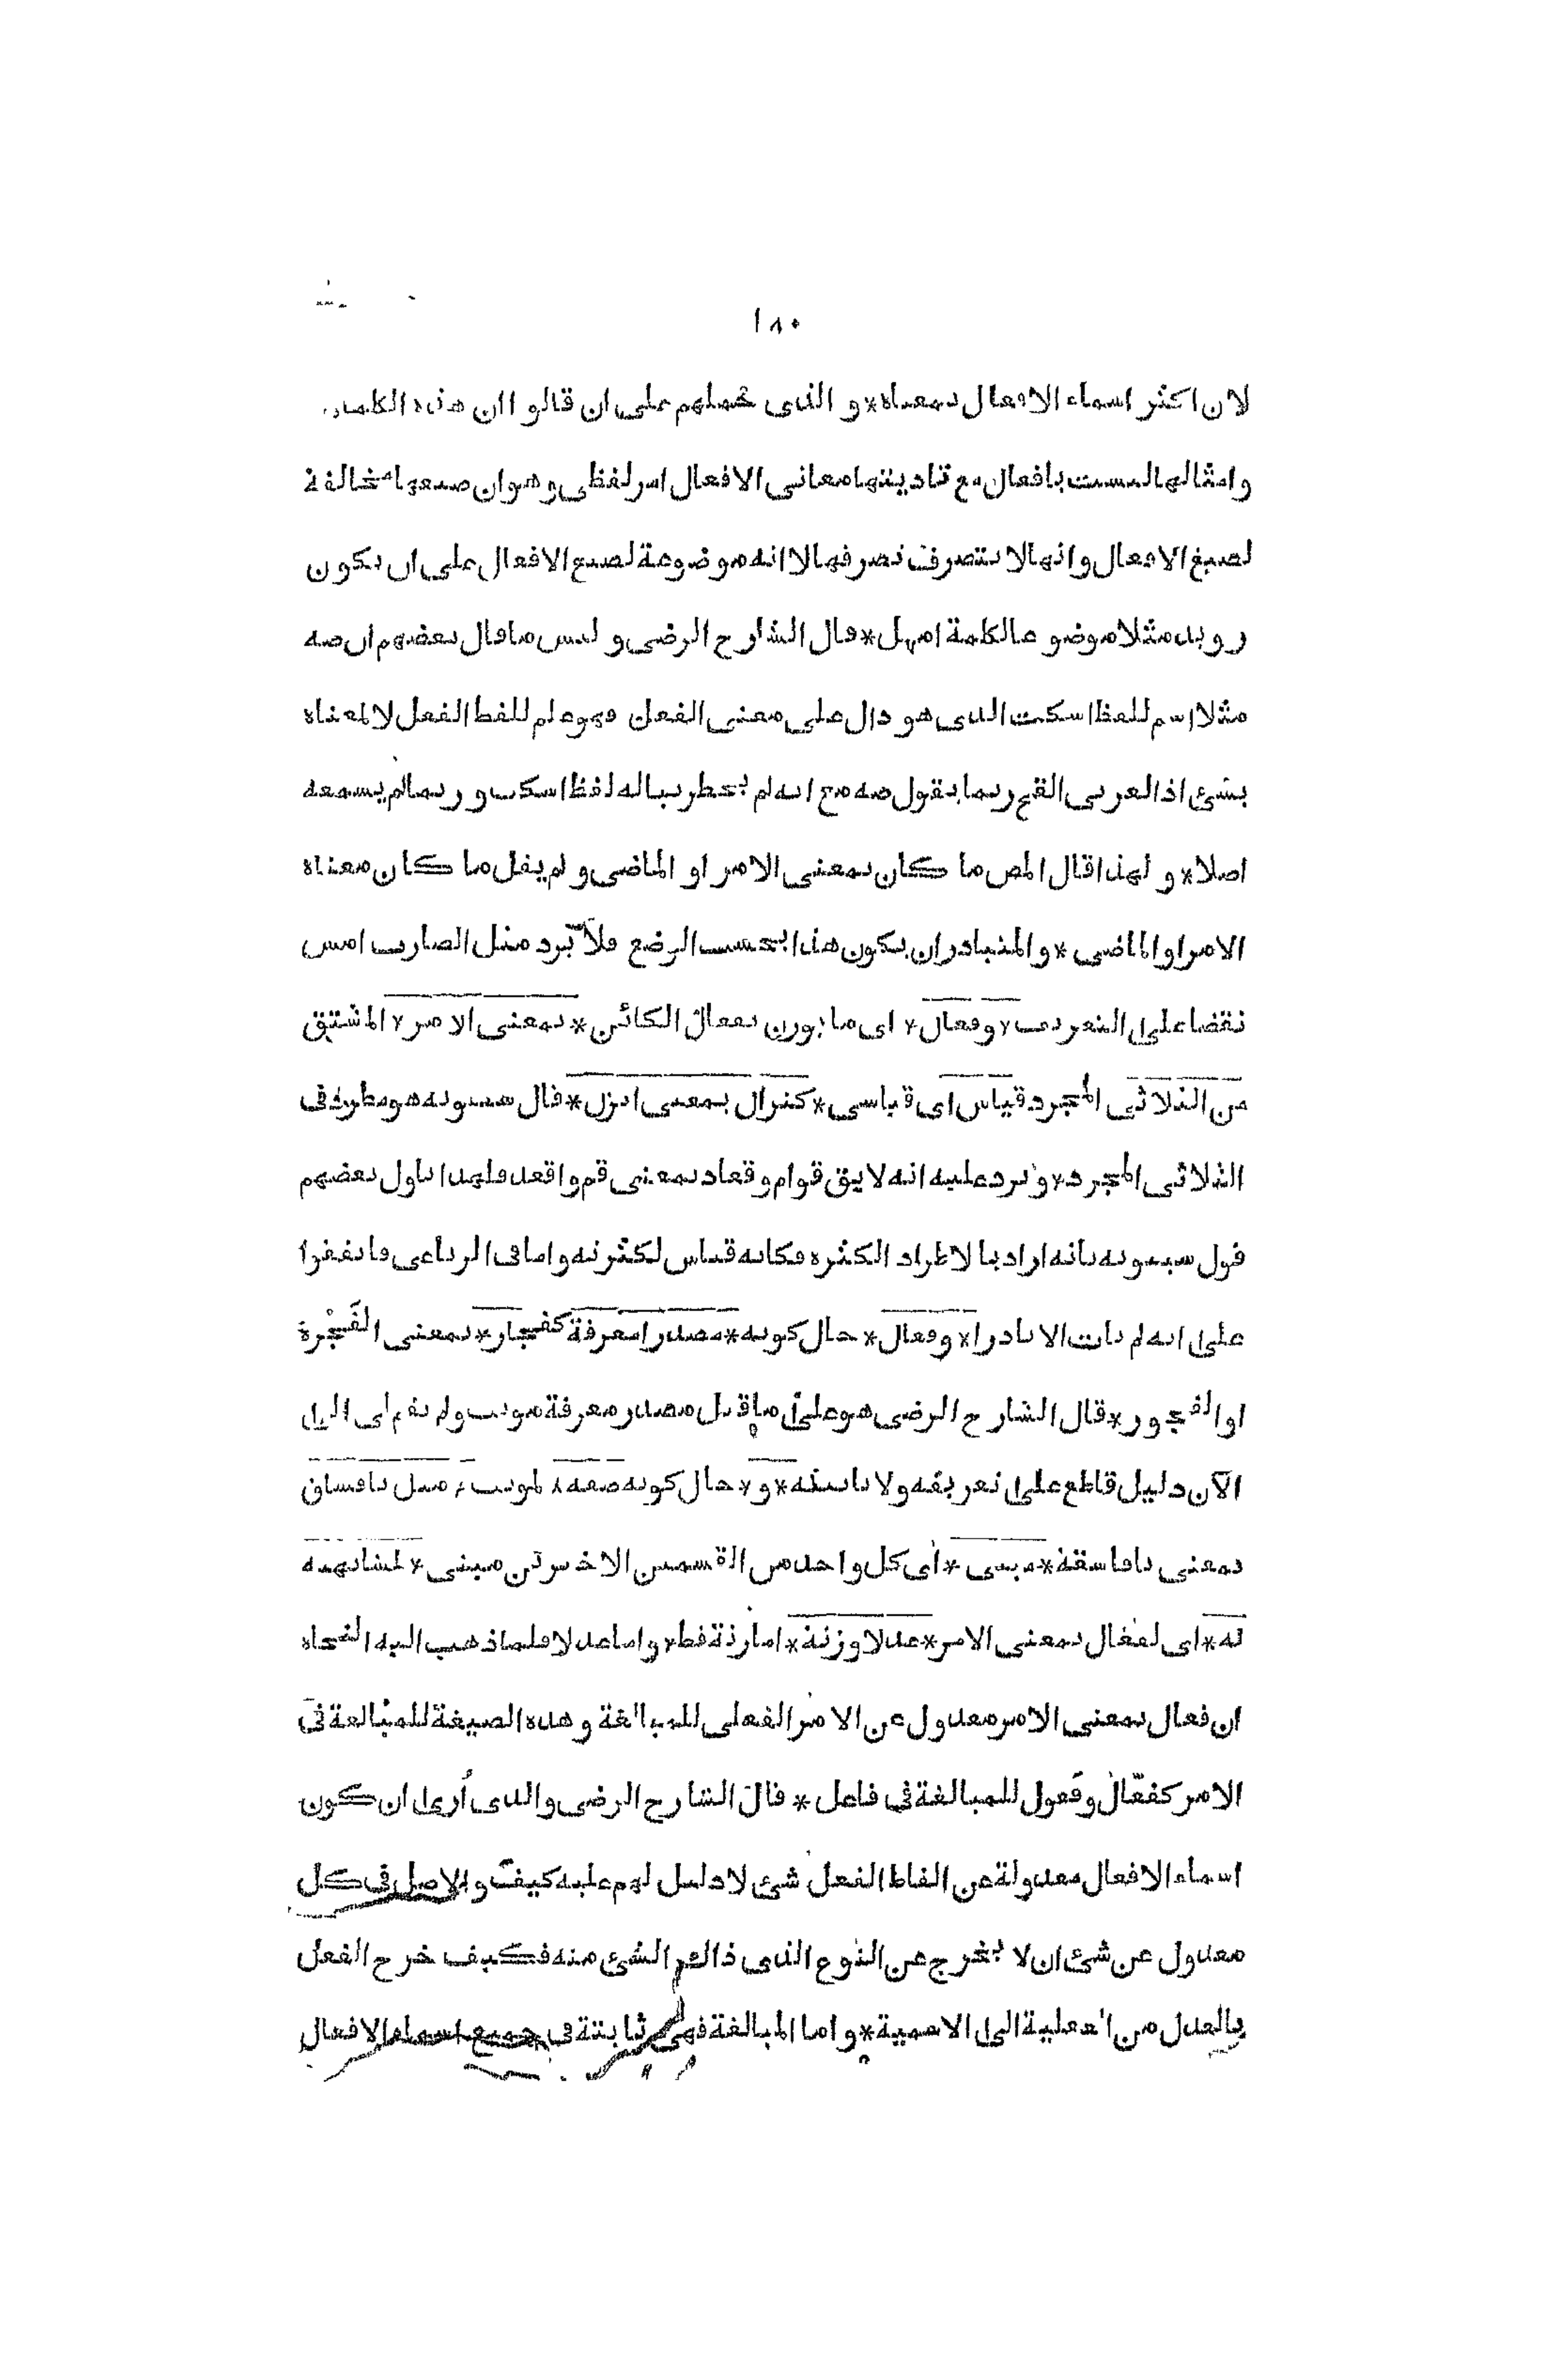 ١٨٠
لان اكثر اسماء الافعال بمعناه * و الذى حملهم على ان قالوا ان هذه الكلمات
وامثالها ليست بافعال مع تاديتها معانى الافعال امر لفظى وهو ان صيغها مخالفة
لصيغ الافعال وانها لا تتصرف تصرفها لا انه موضوعة لصيغ الافعال على ان يكون
رويد مثلا موضوعا لكلمة امهل * قال الشارح الرضى و ليس ما قال بعضهم ان صه
مثلا اسم للفظ اسكت الذى هو دال على معنى الفعل فهو علم للفظ الفعل لا لمعناه
بشئ اذ العربى القح ربما يقول صه مع انه لم يخطر بباله لفظ اسكت و ربما لم يسمعه
اصلا * و لهذا قال المص ما كان بمعنى الامر او الماضى و لم يقل ما كان معناه
الامر او الماضى * و المتبادر ان يكون هذا بحسب الوضع فلا يرد مثل الضارب امس
نقضا على التعريف * وفعال * اى ما يوزن بفعال الكائن * بمعنى الامر * المشتق
من الثلاثى المجرد قياس اى قياسى * كنزال بمعنى انزل * قال سيبويه هو مطرد فى
الثلاثى المجرد * و يرد عليه انه لا يق قوام وقعاد بمعنى قم واقعد فلهذا اول بعضهم
قول سيبويه بانه اراد بالاطراد الكثرة فكانه قياس لكثرته واما فى الرباعى فاتفقوا
على انه لم يات الا نادرا * وفعال * حال كونه * مصدرا معرفة كفجار * بمعنى الفَجْرة
او الفجور * قال الشارح الرضى هو على ما قيل مصدر معرفة مونث ولم يقم لى الى
الآن دليل قاطع على تعريفه ولا تانيثه * و * حال كونه صفة * لمونث * مثل يا فساق
بمعنى يا فاسقة * مبنى * اى كل واحد من القسمين الاخيرين مبنى * لمشابهته
له * اى لفعال بمعنى الامر * عدلا وزنة * اما زنة فظ * واما عدلا فلما ذهب اليه النحاه
ان فعال بمعنى الامر معدول عن الامر الفعلى للمبالغة و هذه الصيغة للمبالغة فى
الامر كفعّال وفَعول للمبالغة فى فاعل * قال الشارح الرضى والذى أرى ان كون
اسماء الافعال معدولة عن الفاظ الفعل شئ لا دليل لهم عليه كيف والاصل فى كل
معدول عن شئ ان لا يخرج عن النوع الذى ذالك الشئ منه فكيف خرج الفعل
بالعدل من الفعلية الى الاسمية * و اما المبالغة فهى ثابتة فى جميع اسماء الافعال